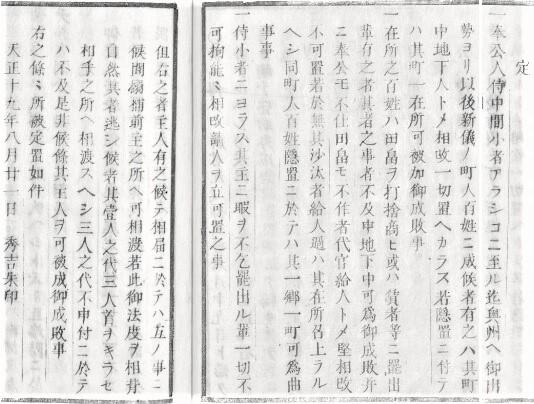 定
一奉公人侍中間小者アラシコニ至ル迄奥州ヘ御出
勢ヨリ以後新儀ノ町人百姓ニ成候者有之ハ其町
中地下人トメ相改一切置ヘカラス若隠置ニ付テ
ハ其町一在所可被加御成敗事
一在所之百姓ハ田畠ヲ打捨商ヒ或ハ賃者等ニ罷出
輩有之者其者之事者不及申地下中可為御成敗并
ニ奉公モ不仕田畠モ不作者代官給人トメ堅相改
不可置若於無其沙汰者給人過ハ其在所召上ラル
ヘシ同町人百姓隠置ニ於テハ其一郷一町可為曲
事事
一侍小者ニヨラス其主ニ暇ヲ不乞罷出ル輩一切不
可拘能ミ相改請人ヲ立可置之事
但右之者主人有之候テ相届ニ於テハ互ノ事ニ
候間搦捕前主之所ヘ可相渡若此御法度ヲ相背
自然其者逃シ候者其壹人之代三人首ヲキラセ
相手之所ヘ相渡スヘシ三人之代不申付ニ於テ
ハ不及是非候條其主人ヲ可被成御成敗事
右之條ミ所被定置如件
天正十九年八月廿一日　秀吉朱印